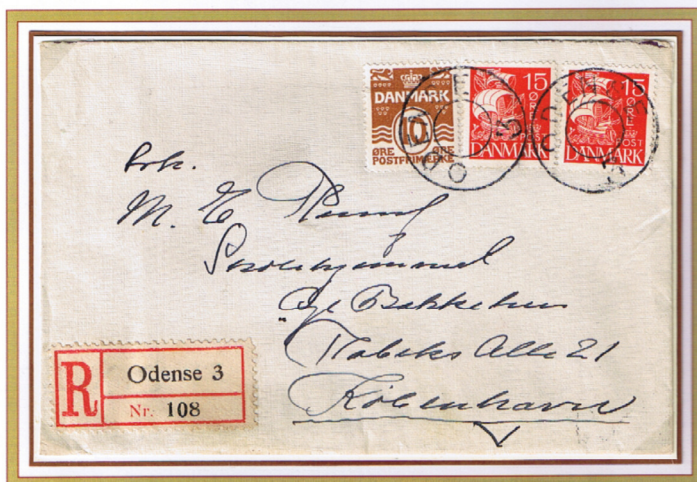 DANMARK
10
ØRE ØRE
POSTFRIMÆRKE
15
ØRE
POST
DANMARK
15
ØRE
POST
DANMARK
ODENSE
3
ODENSE
3
Frk.
M. E.
Bakkehus
Rabeks Alle 21
København
R
Odense 3
Nr. 108